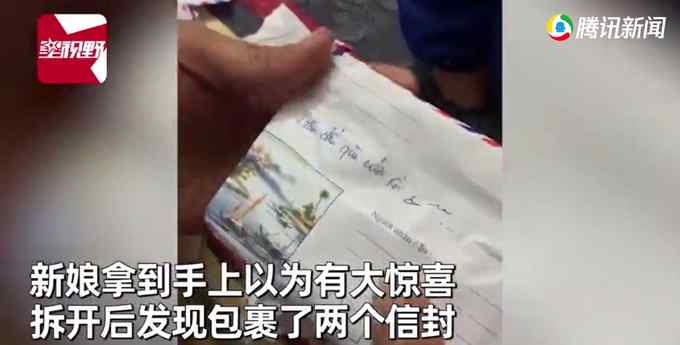 星视野
腾讯新闻
Người nhận
新娘拿到手上以为有大惊喜
拆开后发现包裹了两个信封